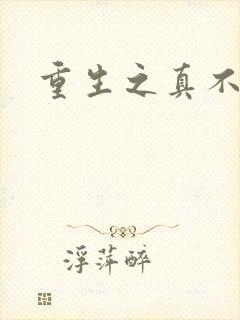 重生之真不
浮萍醉